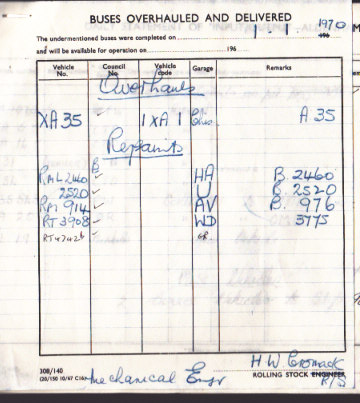 BUSES OVERHAULED AND DELIVERED
The undermentioned buses were completed on 1 . 1 . 1970
and will be available for operation on 196
Vehicle No. Council No. Vehicle code Garage Remarks
Overhauls
XA 35 ✓ 1XA 1 A 35
Repaints
B
RML2460 ✓ HA B 2460
2520 ✓ U B 2520
RM 914 ✓ AV B 976
RT 3908 ✓ WD 3775
RT4742 ✓ GR
308/140
(20/150 10/67 C16) Mechanical Engr
H W Cromack
ROLLING STOCK ENGINEER
R/S